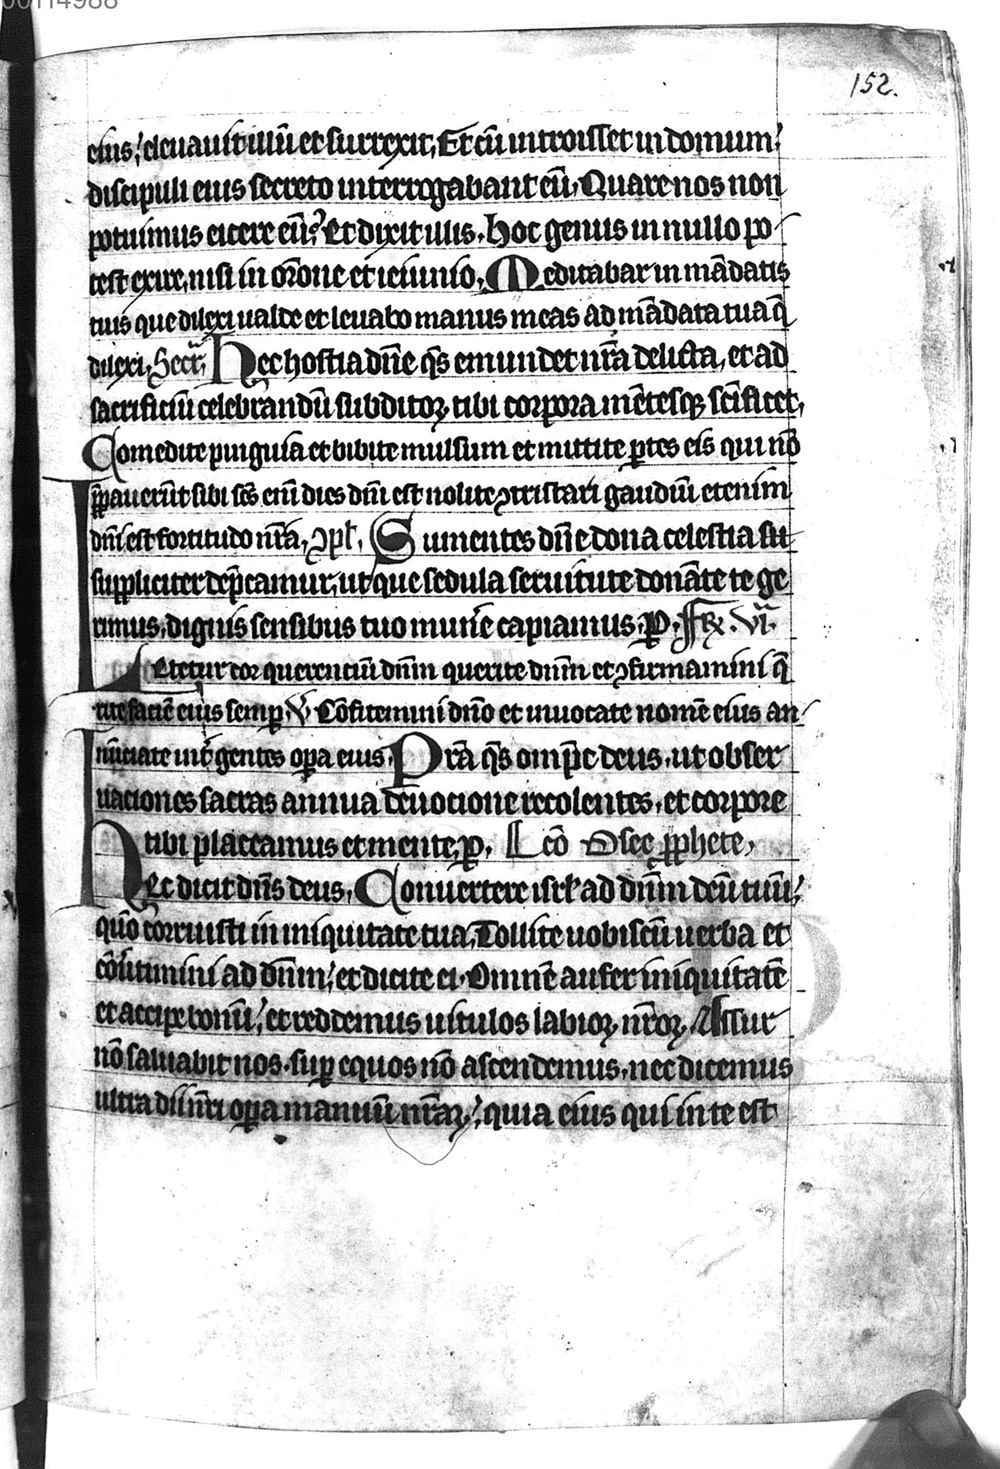 00114988
152.
eius; eleuauit illū et surrexit, Et cū introisset in domum;
discipuli eius secreto interrogabant eū, Quare nos non
potuimus eicere eū? Et dixit illis, hoc genus in nullo po-
test exire, nisi in or̄one et ieiunio, Meditabar in mādatis
tuis que dilexi ualde et leuabo manus meas ad mādata tua q̄
dilexi, Secr̄, hec hostia dn̄e qs̄ emundet nr̄a delicta, et ad
sacrificiū celebrandū subditoꝝ tibi corpora mētesqꝫ sc̄ificet,
Comedite pinguia et bibite mulsum et mittite ꝑtes eis qui nō
p̄parauerūt sibi sc̄s enī dies dn̄i est nolite ꝯtristari gaudiū etenim
dn̄i est fortitudo nr̄a, ꝯpl̄, Sumentes dn̄e dona celestia su-
suppliciter dep̄camur, ut que sedula seruitute donāte te ge
rimus, dignis sensibus tuo mun̄e capiamus, ꝑ, Fr̄ VI
Letetur cor querentiū dn̄m querite dn̄m et ꝯfirmamini q̄
rite faciē eius semꝑ, V Cōfitemini dn̄o et inuocate nomē eius an-
nūciate int̄ gentes oꝑa eius, Pr̄a qs̄ omp̄c deus, ut obser
uaciones sacras annua deuocione recolentes, et corpore
tibi placeamus et mente, ꝑ, Lcō Osee ꝓphete,
Hec dicit dn̄s deus, Conuertere isrl̄ ad dn̄m deū tuū;
qm̄o corruisti in iniquitate tua, Tollite uobiscū uerba et
cōūtimini ad dn̄m; et dicite ei, Omnē aufer iniquitatē
et accipe bonū; et reddemus uitulos labioꝝ nr̄oꝝ, Assur
nō saluabit nos, suꝑ equos nō ascendemus, nec dicemus
ultra dii nr̄i oꝑa manuū nr̄aꝝ; quia eius qui in te est